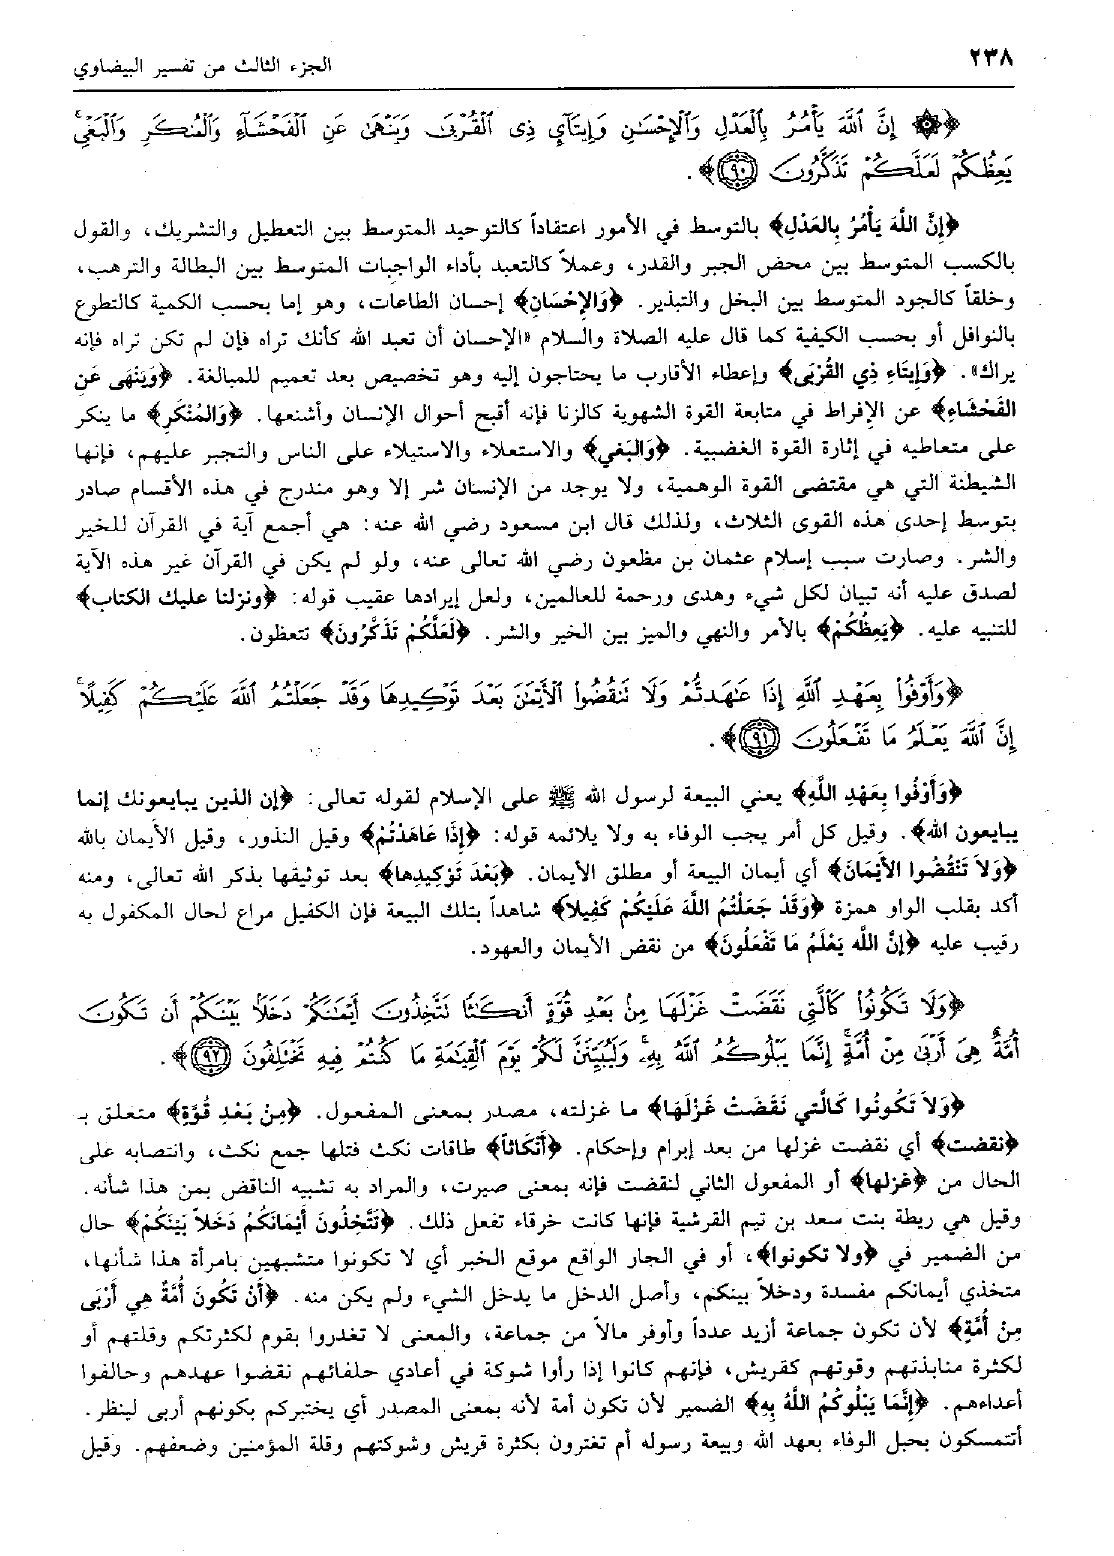 ٢٣٨
الجزء الثالث من تفسير البيضاوي
﴿۞ إِنَّ ٱللَّهَ يَأۡمُرُ بِٱلۡعَدۡلِ وَٱلۡإِحۡسَٰنِ وَإِيتَآيِٕ ذِي ٱلۡقُرۡبَىٰ وَيَنۡهَىٰ عَنِ ٱلۡفَحۡشَآءِ وَٱلۡمُنكَرِ وَٱلۡبَغۡيِۚ
يَعِظُكُمۡ لَعَلَّكُمۡ تَذَكَّرُونَ ﴿٩٠﴾﴾.
﴿إِنَّ اللَّهَ يَأْمُرُ بِالعَدْلِ﴾ بالتوسط في الأمور اعتقاداً كالتوحيد المتوسط بين التعطيل والتشريك، والقول
بالكسب المتوسط بين محض الجبر والقدر، وعملاً كالتعبد بأداء الواجبات المتوسط بين البطالة والترهب،
وخلقاً كالجود المتوسط بين البخل والتبذير. ﴿وَالإِحْسَانِ﴾ إحسان الطاعات، وهو إما بحسب الكمية كالتطوع
بالنوافل أو بحسب الكيفية كما قال عليه الصلاة والسلام «الإحسان أن تعبد الله كأنك تراه فإن لم تكن تراه فإنه
يراك». ﴿وَإِيتَاءِ ذِي القُرْبَى﴾ وإعطاء الأقارب ما يحتاجون إليه وهو تخصيص بعد تعميم للمبالغة. ﴿وَيَنْهَى عَنِ
الفَحْشَاءِ﴾ عن الإفراط في متابعة القوة الشهوية كالزنا فإنه أقبح أحوال الإنسان وأشنعها. ﴿وَالمُنْكَرِ﴾ ما ينكر
على متعاطيه في إثارة القوة الغضبية. ﴿وَالبَغي﴾ والاستعلاء والاستيلاء على الناس والتجبر عليهم، فإنها
الشيطنة التي هي مقتضى القوة الوهمية، ولا يوجد من الإنسان شر إلا وهو مندرج في هذه الأقسام صادر
بتوسط إحدى هذه القوى الثلاث، ولذلك قال ابن مسعود رضي الله عنه: هي أجمع آية في القرآن للخير
والشر. وصارت سبب إسلام عثمان بن مظعون رضي الله تعالى عنه، ولو لم يكن في القرآن غير هذه الآية
لصدق عليه أنه تبيان لكل شيء وهدى ورحمة للعالمين، ولعل إيرادها عقيب قوله: ﴿ونزلنا عليك الكتاب﴾
للتنبيه عليه. ﴿يَعِظُكُمْ﴾ بالأمر والنهي والميز بين الخير والشر. ﴿لَعَلَّكُمْ تَذَكَّرُونَ﴾ تتعظون.
﴿وَأَوۡفُواْ بِعَهۡدِ ٱللَّهِ إِذَا عَٰهَدتُّمۡ وَلَا تَنقُضُواْ ٱلۡأَيۡمَٰنَ بَعۡدَ تَوۡكِيدِهَا وَقَدۡ جَعَلۡتُمُ ٱللَّهَ عَلَيۡكُمۡ كَفِيلًاۚ
إِنَّ ٱللَّهَ يَعۡلَمُ مَا تَفۡعَلُونَ ﴿٩١﴾﴾.
﴿وَأَوْفُوا بِعَهْدِ اللَّهِ﴾ يعني البيعة لرسول الله ﷺ على الإسلام لقوله تعالى: ﴿إن الذين يبايعونك إنما
يبايعون الله﴾. وقيل كل أمر يجب الوفاء به ولا يلائمه قوله: ﴿إِذَا عَاهَدْتُمْ﴾ وقيل النذور، وقيل الأيمان بالله
﴿وَلاَ تَنْقُضُوا الأَيْمَانَ﴾ أي أيمان البيعة أو مطلق الأيمان. ﴿بَعْدَ تَوْكِيدِهَا﴾ بعد توثيقها بذكر الله تعالى، ومنه
أكد بقلب الواو همزة ﴿وَقَدْ جَعَلْتُمُ اللَّهَ عَلَيْكُمْ كَفِيلاً﴾ شاهداً بتلك البيعة فإن الكفيل مراع لحال المكفول به
رقيب عليه ﴿إِنَّ اللَّهَ يَعْلَمُ مَا تَفْعَلُونَ﴾ من نقض الأيمان والعهود.
﴿وَلَا تَكُونُواْ كَٱلَّتِي نَقَضَتۡ غَزۡلَهَا مِنۢ بَعۡدِ قُوَّةٍ أَنكَٰثٗا تَتَّخِذُونَ أَيۡمَٰنَكُمۡ دَخَلَۢا بَيۡنَكُمۡ أَن تَكُونَ
أُمَّةٌ هِيَ أَرۡبَىٰ مِنۡ أُمَّةٍۚ إِنَّمَا يَبۡلُوكُمُ ٱللَّهُ بِهِۦۚ وَلَيُبَيِّنَنَّ لَكُمۡ يَوۡمَ ٱلۡقِيَٰمَةِ مَا كُنتُمۡ فِيهِ تَخۡتَلِفُونَ ﴿٩٢﴾﴾.
﴿وَلاَ تَكُونُوا كَالَّتي نَقَضَتْ غَزْلَهَا﴾ ما غزلته، مصدر بمعنى المفعول. ﴿مِنْ بَعْدِ قُوَّةٍ﴾ متعلق بـ
﴿نقضت﴾ أي نقضت غزلها من بعد إبرام وإحكام. ﴿أَنْكَاثاً﴾ طاقات نكث فتلها جمع نكث، وانتصابه على
الحال من ﴿غزلها﴾ أو المفعول الثاني لنقضت فإنه بمعنى صيرت، والمراد به تشبيه الناقض بمن هذا شأنه.
وقيل هي ريطة بنت سعد بن تيم القرشية فإنها كانت خرقاء تفعل ذلك. ﴿تَتَّخِذُونَ أَيْمَانَكُمْ دَخَلاً بَيْنَكُمْ﴾ حال
من الضمير في ﴿ولا تكونوا﴾، أو في الجار الواقع موقع الخبر أي لا تكونوا متشبهين بامرأة هذا شأنها،
متخذي أيمانكم مفسدة ودخلاً بينكم، وأصل الدخل ما يدخل الشيء ولم يكن منه. ﴿أَنْ تَكُونَ أُمَّةٌ هِي أَرْبَى
مِنْ أُمَّةٍ﴾ لأن تكون جماعة أزيد عدداً وأوفر مالاً من جماعة، والمعنى لا تغدروا بقوم لكثرتكم وقلتهم أو
لكثرة منابذتهم وقوتهم كقريش، فإنهم كانوا إذا رأوا شوكة في أعادي حلفائهم نقضوا عهدهم وحالفوا
أعداءهم. ﴿إِنَّمَا يَبْلُوكُمُ اللَّهُ بِهِ﴾ الضمير لأن تكون أمة لأنه بمعنى المصدر أي يختبركم بكونهم أربى لينظر.
أتتمسكون بحبل الوفاء بعهد الله وبيعة رسوله أم تغترون بكثرة قريش وشوكتهم وقلة المؤمنين وضعفهم. وقيل